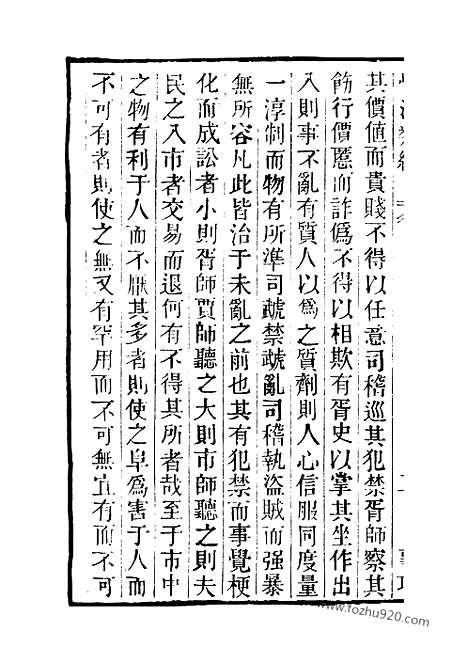 其價値而貴賤不得以任意司稽巡其犯禁胥師察其
飾行價慝而詐僞不得以相欺有胥史以掌其坐作出
入則事不亂有質人以爲之質劑則人心信服同度量
一淳制而物有所準司虣禁虣亂司稽執盜賊而强暴
無所容凡此皆治于未亂之前也其有犯禁而事覺梗
化而成訟者小則胥師賈師聽之大則市師聽之則夫
民之入市者交易而退何有不得其所者哉至于市中
之物有利于人而不厭其多者則使之阜爲害于人而
不可有者則使之無又有罕用而不可無宜有而不可
www.fozhu920.com